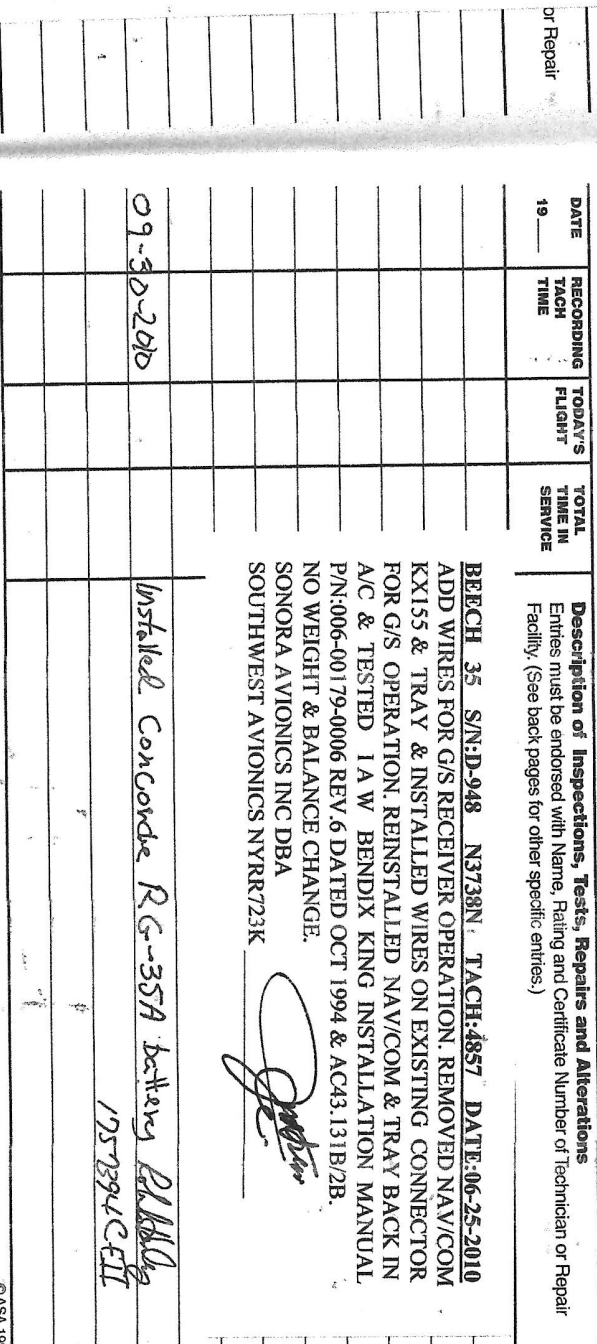 or Repair
DATE
19
RECORDING TACH TIME
TODAY'S FLIGHT
TOTAL TIME IN SERVICE
Description of Inspections, Tests, Repairs and Alterations
Entries must be endorsed with Name, Rating and Certificate Number of Technician or Repair
Facility. (See back pages for other specific entries.)
BEECH 35 S/N:D-948 N3738N TACH:4857 DATE:06-25-2010
ADD WIRES FOR G/S RECEIVER OPERATION. REMOVED NAV/COM
KX155 & TRAY & INSTALLED WIRES ON EXISTING CONNECTOR
FOR G/S OPERATION. REINSTALLED NAV/COM & TRAY BACK IN
A/C & TESTED I A W BENDIX KING INSTALLATION MANUAL
P/N:006-00179-0006 REV.6 DATED OCT 1994 & AC43.131B/2B.
NO WEIGHT & BALANCE CHANGE.
SONORA AVIONICS INC DBA
SOUTHWEST AVIONICS NYRR723K
09-30-2010 Installed Concorde RG-35A battery
1757394CFII
© ASA 19